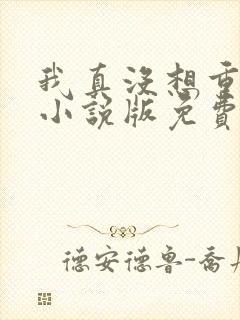 我真没想重
小说版免费
德安德鲁-乔